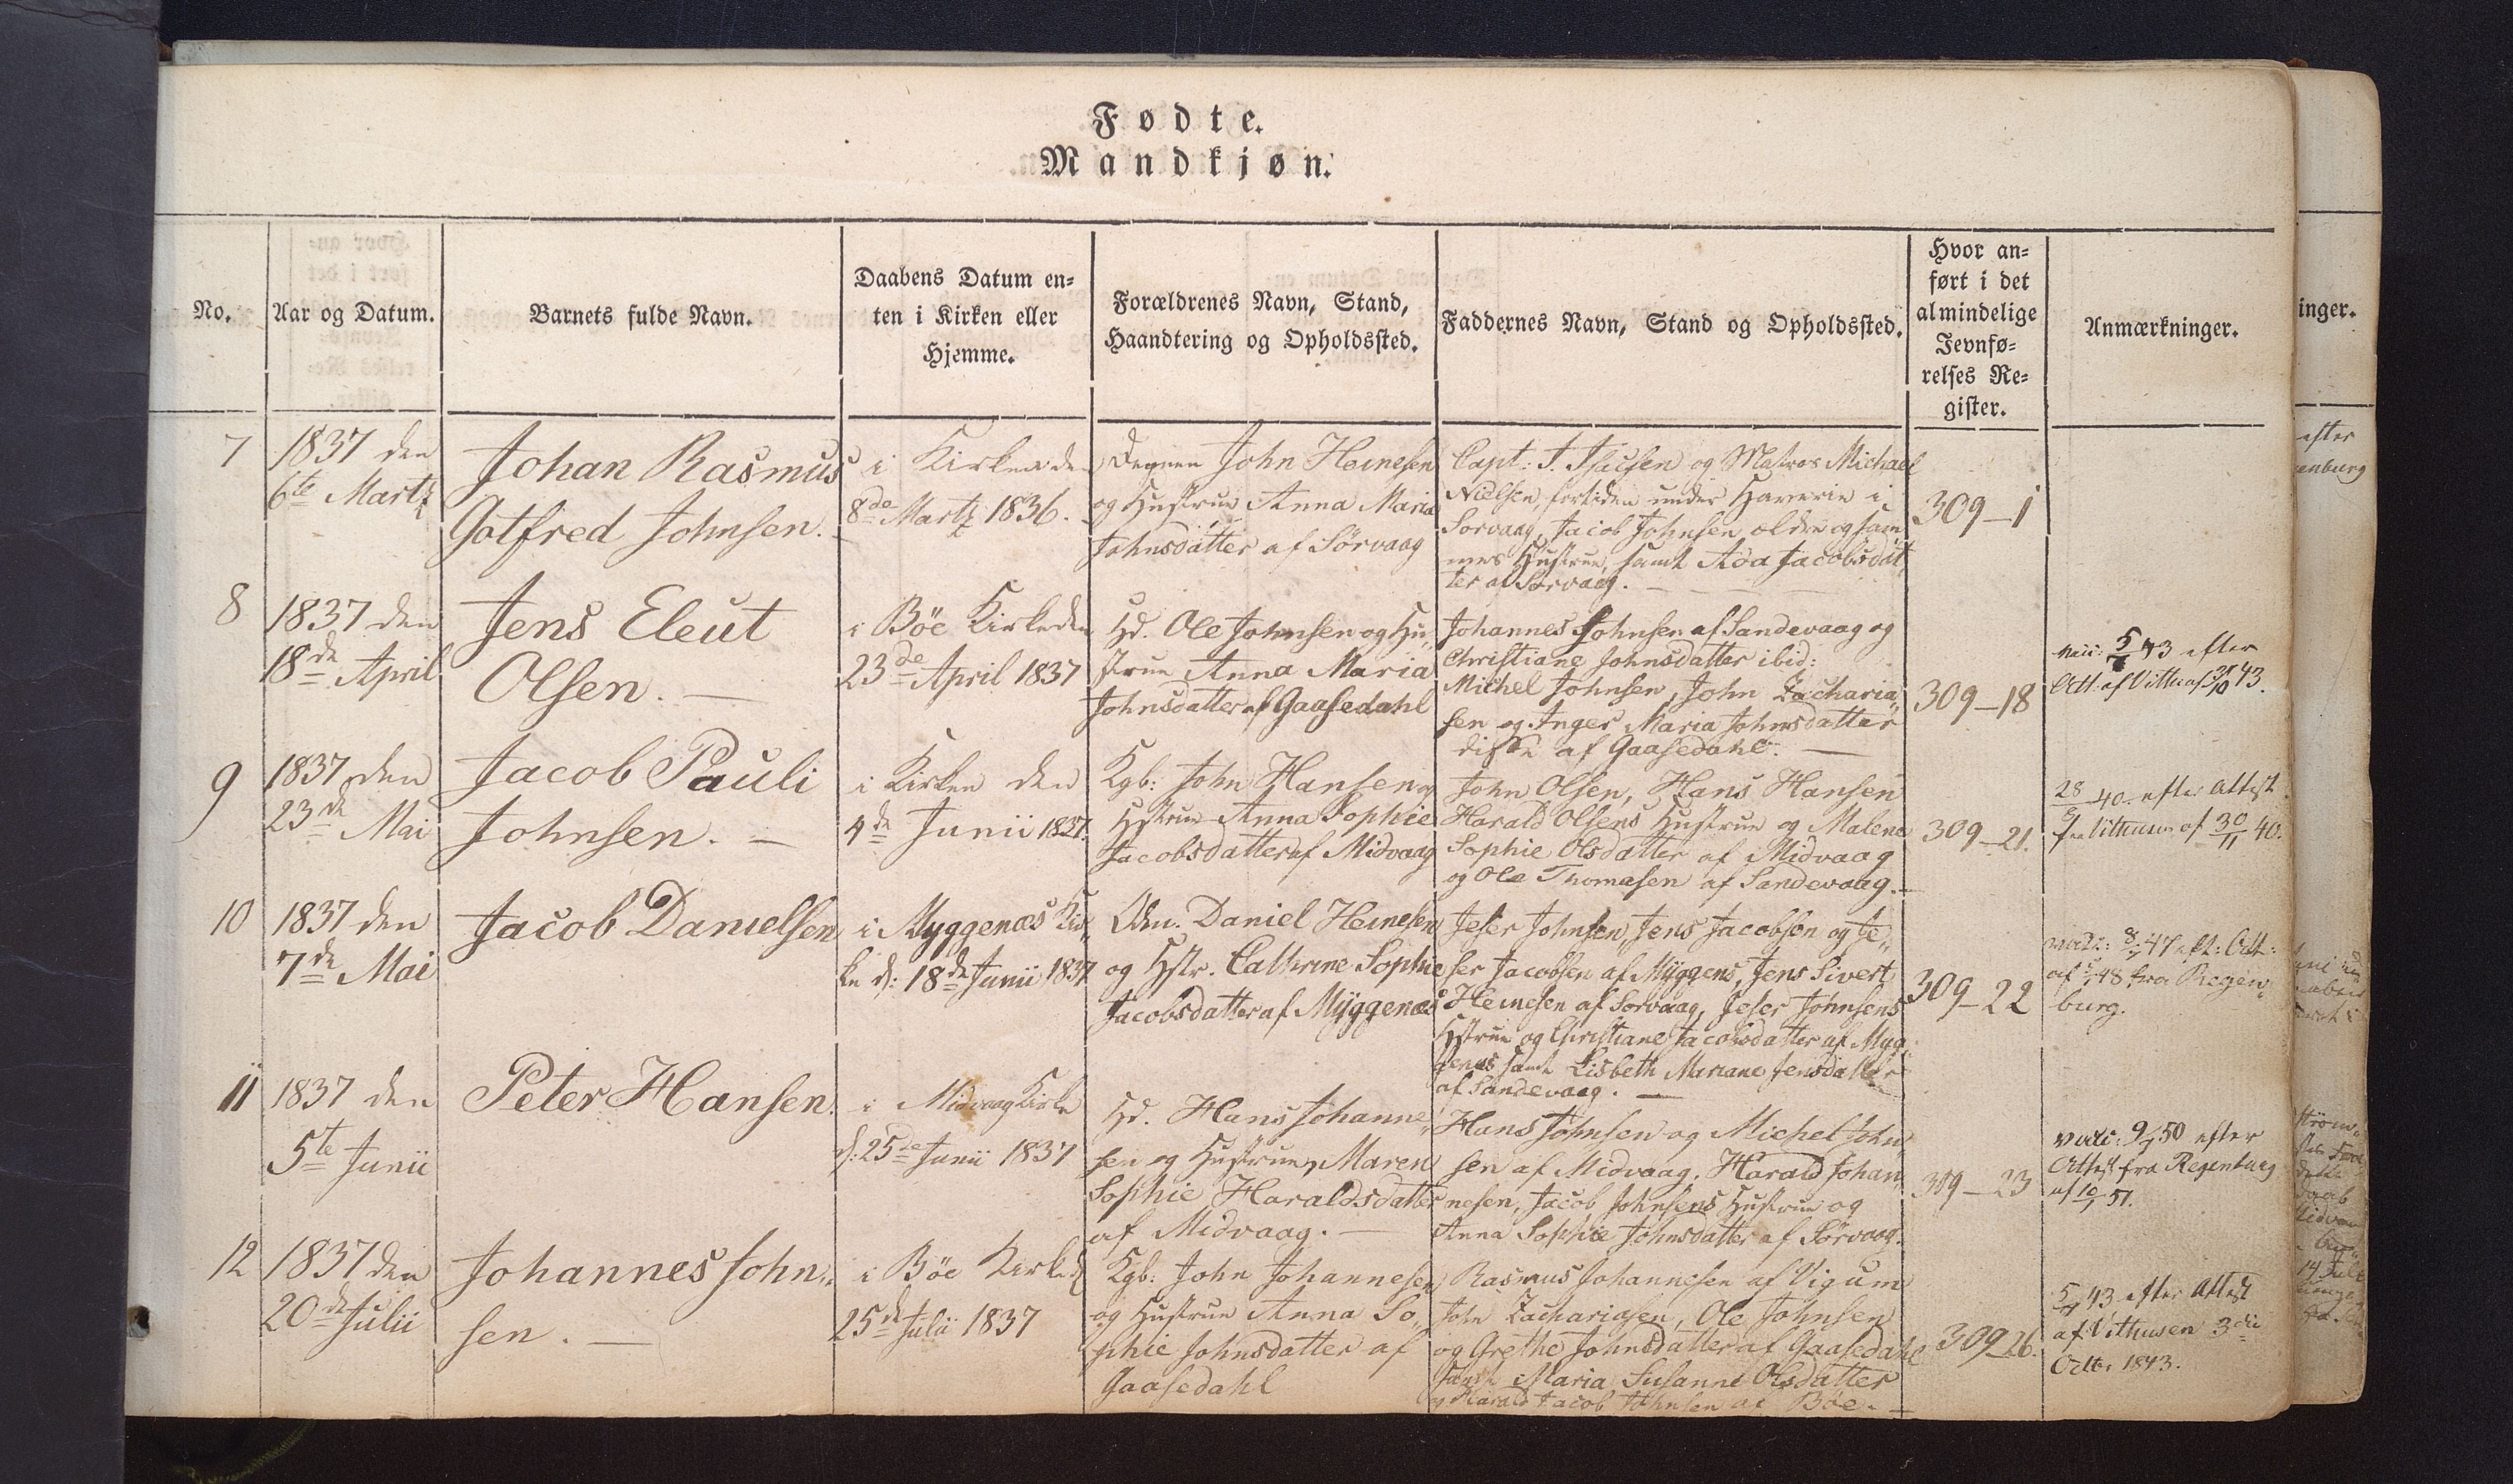 Fødte.
Mandkjøn.
No.
Aar og Datum.
Barnets fulde Navn.
Daabens Datum en-
ten i Kirken eller
Hjemme.
Forældrenes Navn, Stand,
Haandtering og Opholdssted.
Faddernes Navn, Stand og Opholdssted.
Hvor an-
ført i det
almindelige
Jevnfø-
relses Re-
gister.
Anmærkninger.
inger.
7
1837 den
6te Martz
Johan Rasmus
Gotfred Johnsen.
i Kirken den
8de Martz 1836.
Degnen John Heinesen
og Hustrue Anna Maria
Johnsdatter af Sörvaag
Capt: J. Isacsen og Matros Michael
Nielsen, fortiden under Haverie i
Sorvaag, Jacob Johnsen ældre og sam
mes Hustrue, samt Ada Jacobsdat
ter af Sörvaag. —
309—1
8
1837 den
18de April
Jens Eleut
Olsen. —
i Böe Kirke den
23de April 1837
Hd. Ole Johnsen og Hu„
strue Anna Maria
Johnsdatter af Gaasedahl
Johannes Johnsen af Sandevaag og
Christiane Johnsdatter ibid:
Michel Johnsen, John Zacharia„
sen og Inger Maria Johnsdatter
disse af Gaasedahl. —
309—18
43 efter
Att: af 43.
9
1837 den
23de Mai
Jacob Pauli
Johnsen. —
i Kirken den
4de Junii 1837.
Kgb: John Hansen og
Hstrue Anna Sophie
Jacobsdatter af Midvaag
John Olsen, Hans Hansen
Harald Olsens Hustrue og Malene
Sophie Olsdatter af Midvaag
og Ole Thomasen af Sandevaag. —
309—21.
28 40. efter Attest
fra Vithusen af 30/11 40.
10
1837 den
7de Mai
Jacob Danielsen
i Myggenæs Kir„
ke d: 18de Junii 1837
Daniel Heinesen
og Hstr. Cathrine Sophie
Jacobsdatter af Myggenæs
Jeser Johnsen, Jens Jacobsen og Je„
ser Jacobsen af Myggens, Jens Sivert
Heinesen af Sorvaag, Jeser Johnsens
Hstrue og Christiane Jacobsdatter af Myg„
genæs samt Lisbeth Mariane Jensdatter
af Sandevaag. —
309—22
47 eft: Att:
af 48 fra Regen„
burg.
11
1837 den
5te Junii
Peter Hansen.
i Midvaag Kirke
d: 25de Junii 1837
Hd. Hans Johanne„
sen og Hustrue Maren
Sophie Haraldsdatter
af Midvaag. —
Hans Johnsen og Michel John„
sen af Midvaag, Harald Johan„
nesen, Jacob Johnsens Hustrue og
Anna Sophie Johnsdatter af Sörvaag.
309—23
50 efter
Attest fra Regenburg
af 51.
12
1837 den
20de Julii
Johannes John„
sen. —
i Böe Kirke d
25de Julii 1837
Kgb: John Johannesen
og Hustrue Anna So„
phie Johnsdatter af
Gaasedahl
Rasmus Johannesen af Vigum
John Zachariasen, Ole Johnsen
og Grethe Johnsdatter af Gaasedahl
samt Maria Susanne Olsdatter
og Harald Jacob Johnsen af Böe. —
309—26.
43 efter Attest
af Vithusen 3die
Octbr 1843.
efter
enburg